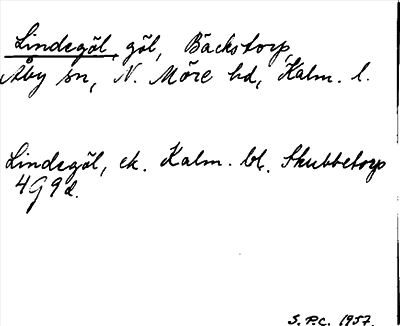 Lindegöl, göl, Bäckstorp,
Åby sn, N. Möre hd, Kalm. l.
Lindegöl, ek. Kalm. bl. Skubbetorp
4G9d.
S.P.C. 1957.